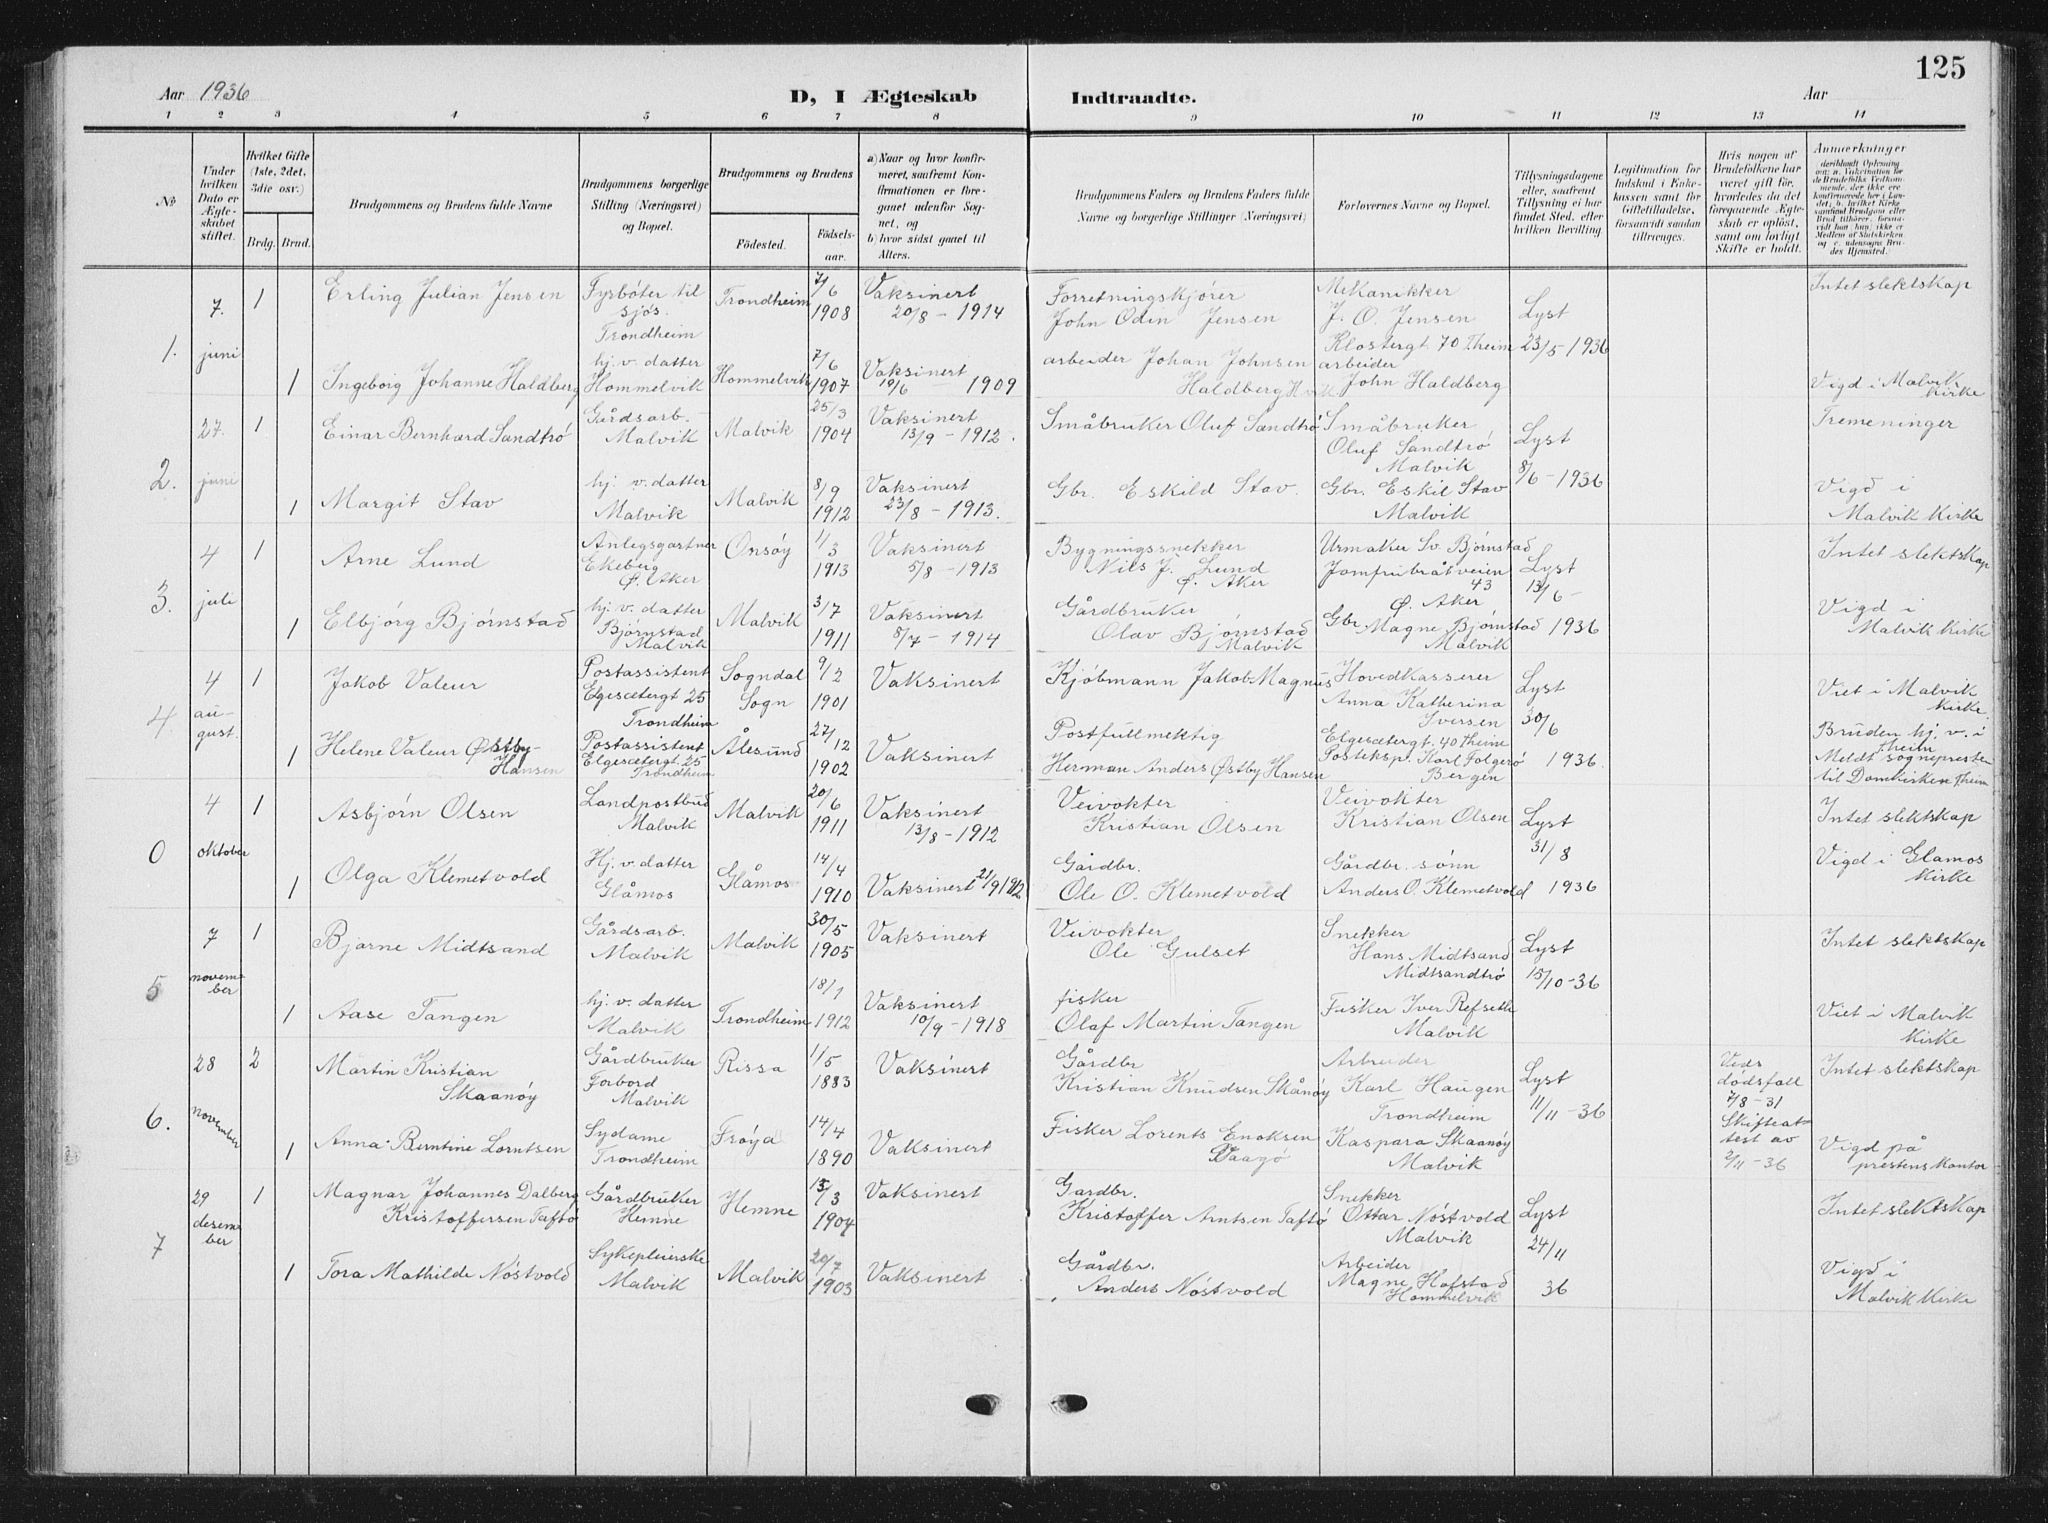 125
Aar 1936
D, I Ægteskab
Indtraadte.
Aar
1 2 3 4 5 6 7 8 9 10 11 12 13 14
No
Under hvilken Dato er Ægteskabet stiftet.
Hvilket Gifte (1ste, 2det, 3die osv.)
Brdg. Brud.
Brudgommens og Brudens fulde Navne
Brudgommens borgerlige Stilling (Næringsvei) og Bopæl.
Brudgommens og Brudens
Fødested. Fødselsaar.
a) Naar og hvor konfirmeret, saafremt Konfirmationen er foregaaet udenfor Sognet, og
b) hvor sidst gaaet til Alters.
Brudgommens Faders og Brudens Faders fulde Navne og borgerlige Stillinger (Næringsvei)
Forlovernes Navne og Bopæl.
Tillysningsdagene eller, saafremt Tillysning ei har fundet Sted, efter hvilken Bevilling
Legitimation for Indskud i Enkekassen samt for Giftetilladelse, forsaavidt saadan tiltrænges.
Hvis nogen af Brudefolkene har været gift før, hvorledes da det foregaaende Ægteskab er opløst, samt om lovligt Skifte er holdt.
Anmerkninger
1. 7. juni
1 Erling Julian Jensen
Fyrbøter til sjøs. Trondheim
Trondheim 7/6 1908
Vaksinert 20/8 - 1914
Forretningskjører John Odin Jensen
Mekanikker J. O. Jensen Klostergt. 70 Theim
Lyst 23/5 1936
Intet slektskap
1 Ingeborg Johanne Haldberg
hj. v. datter Hommelvik
Hommelvik 7/6 1907
Vaksinert 19/6 1909
arbeider Johan Johnsen Haldberg Hvik
arbeider John Haldberg
Vigd i Malvik Kirke
2. 27. juni
1 Einar Bernhard Sandtrø
Gårdsarb. Malvik
Malvik 25/3 1904
Vaksinert 13/9 - 1912.
Småbruker Oluf Sandtrø
Småbruker Oluf Sandtrø Malvik
Lyst 8/6 - 1936
Tremeninger
1 Margit Stav
hj. v. datter Malvik
Malvik 8/9 1912
Vaksinert 23/8 - 1913.
Gbr. Eskild Stav.
Gbr. Eskil Stav Malvik
Vigd i Malvik Kirke
3. 4 juli
1 Arne Lund
Anlegsgartner Ekeberg Ø. Aker
Onsøy 1/3 1913
Vaksinert 5/8 - 1913
Bygningssnekker Nils J. Lund Ø. Aker
Urmaker Sv. Bjørnstad Jomfrubråtveien 43 Ø. Aker
Lyst 13/6 - 1936
Intet slektskap
1 Elbjørg Bjørnstad
hj. v. datter Bjørnstad Malvik
Malvik 3/7 1911
Vaksinert 8/7 - 1914
Gårdbruker Olav Bjørnstad Malvik
Gbr. Magne Bjørnstad Malvik
Vigd i Malvik Kirke
4 4 august.
1 Jakob Valeur
Postassistent Elgesætergt 25 Trondheim
Sogndal Sogn 9/2 1901
Vaksinert
Kjøbmann Jakob Magnus
Hovedkasserer Anna Katherina Iversen Elgesætergt. 40 Theim
Lyst 30/6 1936.
Viet i Malvik Kirke.
1 Helene Valeur Østby-Hansen
Postassistent Elgesætergt. 25 Trondheim
Ålesund 27/12 1902
Vaksinert
Postfullmektig Herman Anders Østby Hansen
Posteksp. Karl Folgerø Bergen
Bruden hj. v. i Theim Meldt sognepresten til Domkirken Theim
0 4 oktober
1 Asbjørn Olsen
Landpostbud Malvik
Malvik 20/6 1911
Vaksinert 13/8 - 1912
Veivokter Kristian Olsen
Veivokter Kristian Olsen
Lyst 31/8 1936
Intet slektskap
1 Olga Klemetvold
Hj. v. datter Glåmos
Glåmos 14/4 1910
Vaksinert 21/9 1912
Gårdbr. Ole O. Klemetvold
Gårdbr. sønn Anders O. Klemetvold
Vigd i Glamos Kirke
5 7 november
1 Bjarne Midtsand
Gårdsarb. Malvik
Malvik 30/5 1905
Vaksinert
Veivokter Ole Gulset
Snekker Hans Midtsand Midtsandtrø
Lyst 15/10 - 36
Intet slektskap
1 Aase Tangen
hj. v. datter Malvik
Trondheim 18/1 1912
Vaksinert 10/9 - 1918
fisker Olaf Martin Tangen
Fisker Iver Refseth Malvik
Viet i Malvik Kirke
6. 28 november
2 Martin Kristian Skaanøy
Gårdbruker Forbord Malvik
Rissa 1/5 1883
Vaksinert
Gårdbr Kristian Knudsen Skånøy
Arbeider Karl Haugen Trondheim
Lyst 11/11 - 36
Veds dødsfall 7/8 - 31 Skifteattest av 2/11 - 36
Intet slektskap
1 Anna Berntine Lorntsen
Sydame Trondheim
Frøya 14/4 1890
Vaksinert
Fisker Lorents Enoksen Vaagø
Kaspara Skaanøy Malvik
Vigd på prestens kontor
7 29 desember
1 Magnar Johannes Dalberg Kristoffersen Taftø
Gårdbruker Hemne
Hemne 13/3 1904
Vaksinert
Gardbr. Kristoffer Arntsen Taftø
Snekker Ottar Nøstvold Malvik
Lyst 24/11 36
Intet slektskap
1 Tora Mathilde Nøstvold
Sykepleierske Malvik
Malvik 20/7 1903
Vaksinert
Gårdbr. Anders Nøstvold
Arbeider Magne Hofstad Hommelvik
Vigd i Malvik Kirke